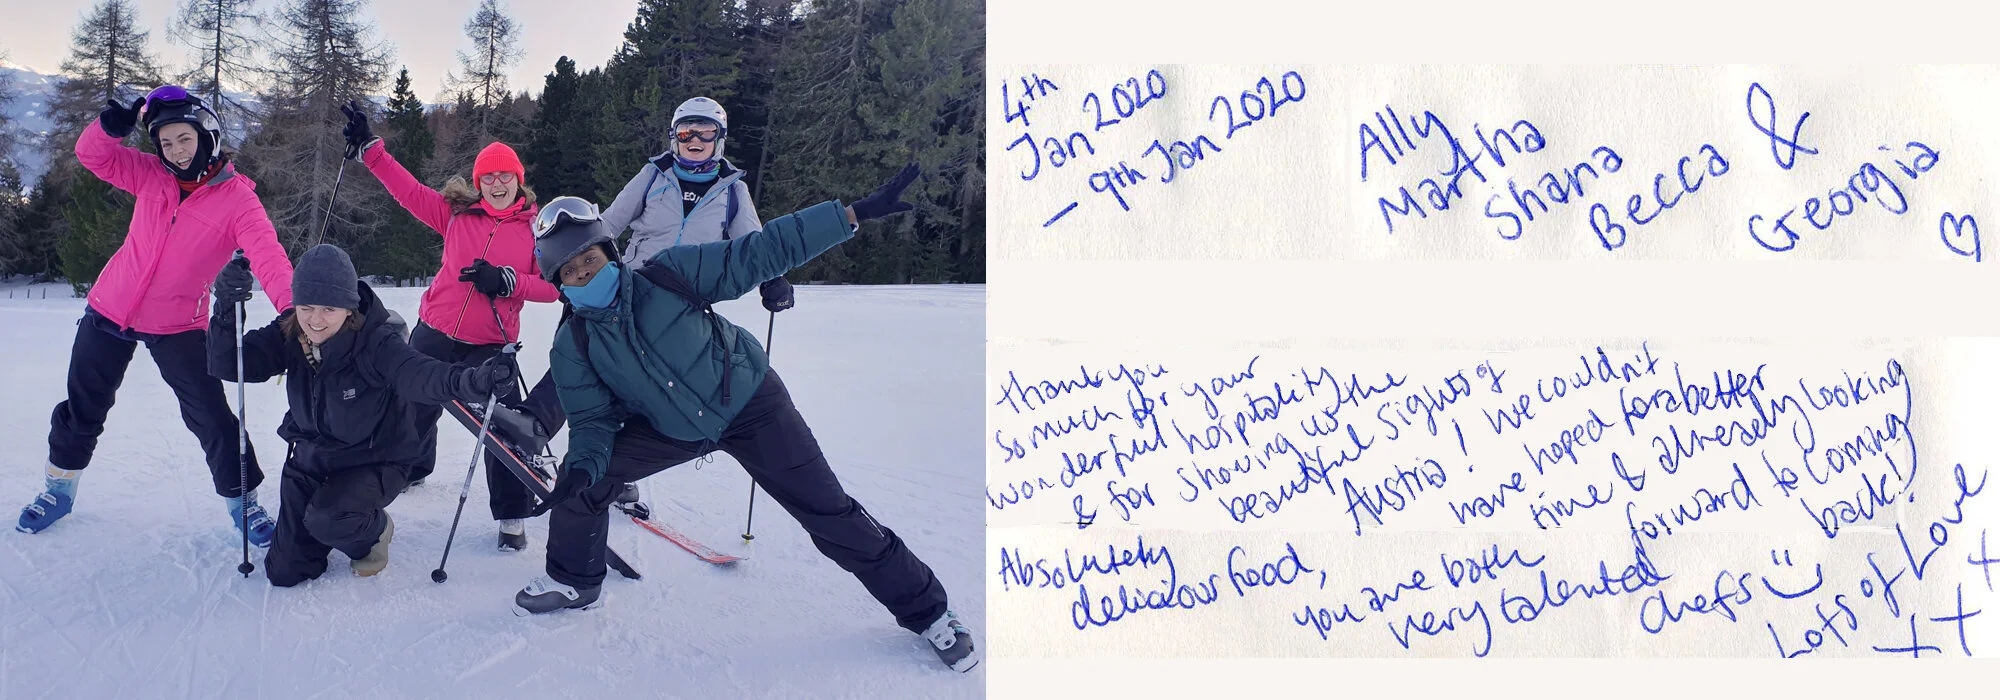 4th
Jan 2020
– 9th Jan 2020
Ally
Martha
Shana
Becca &
Georgia
thank you
so much for your
wonderful hospitality
& for showing us the
beautiful sights of
Austria! We couldn't
have hoped for a better
time & already looking
forward to coming
back!
Absolutely
delicious food,
you are both
very talented
chefs
Lots of Love
xxx